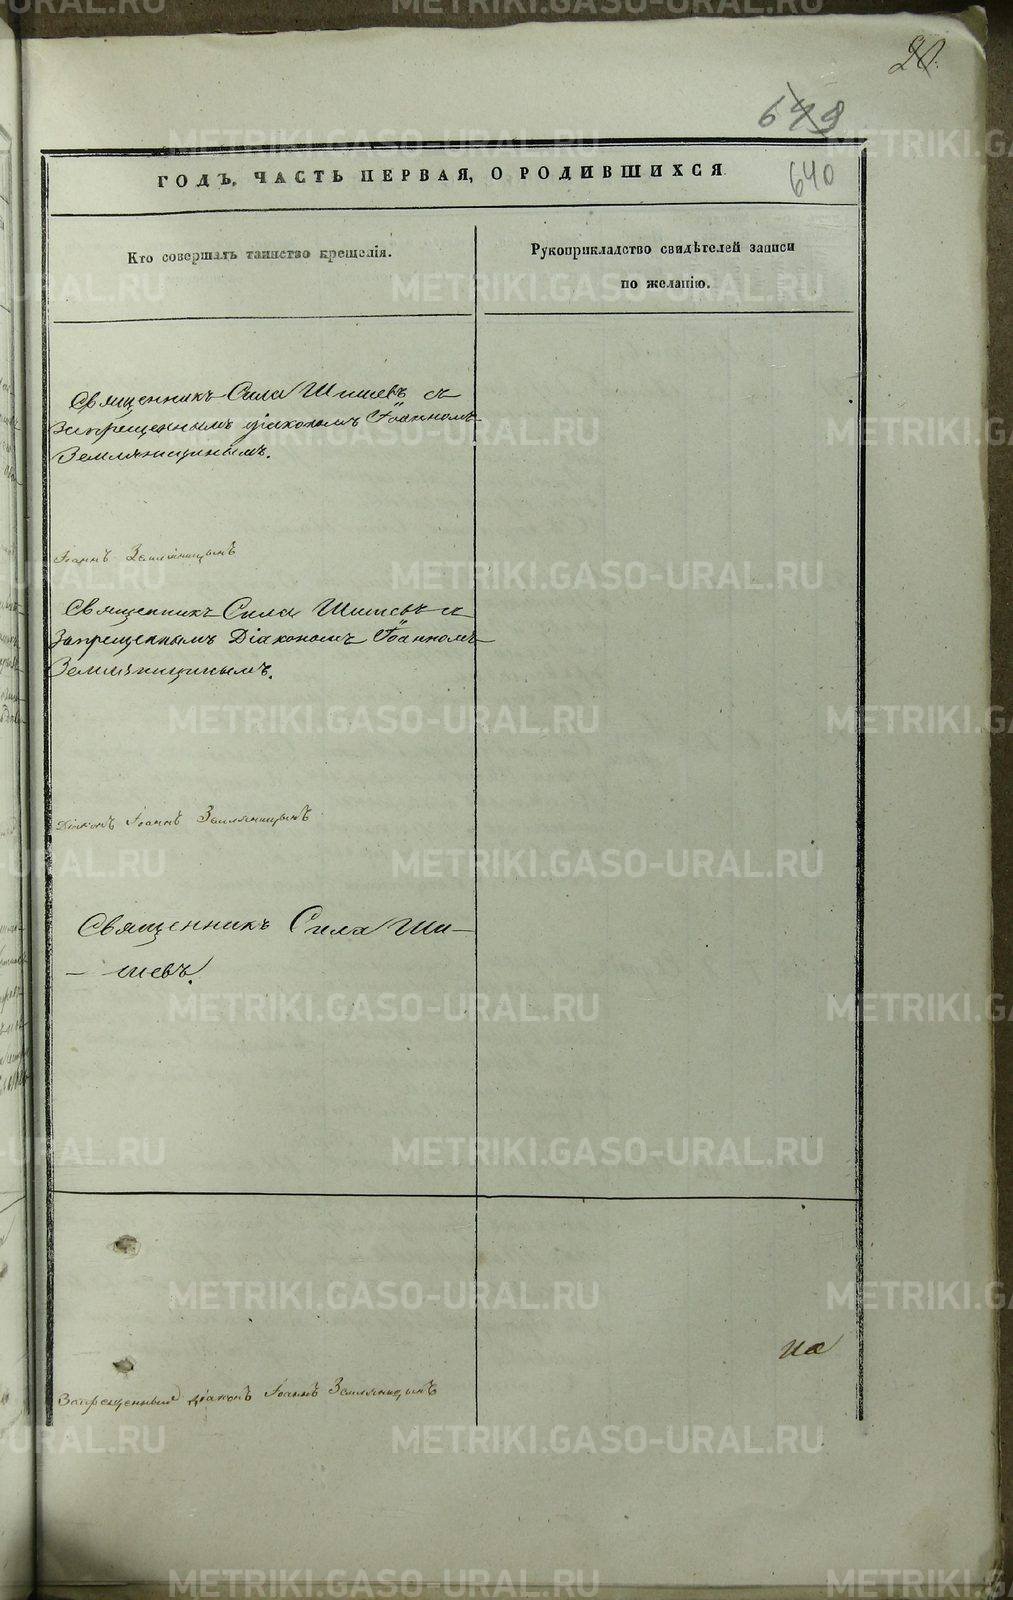 20.
649
640
ГОДЪ, ЧАСТЬ ПЕРВАЯ, О РОДИВШИХСЯ
Кто совершалъ таинство крещенія.
Рукоприкладство свидѣтелей записи
по желанію.
Священникъ Сила Шишевъ съ
Запрещеннымъ діакономъ Іоанномъ
Земляницинымъ.
Іоаннъ Земляницынъ
Священникъ Сила Шишевъ съ
Запрещеннымъ Діакономъ Іоанномъ
Земляницинымъ.
Діаконъ Іоаннъ Земляницынъ
Священникъ Сила Ши-
- шевъ.
на
Запрещенный діаконъ Іоаннъ Земляницынъ
METRIKI.GASO-URAL.RU